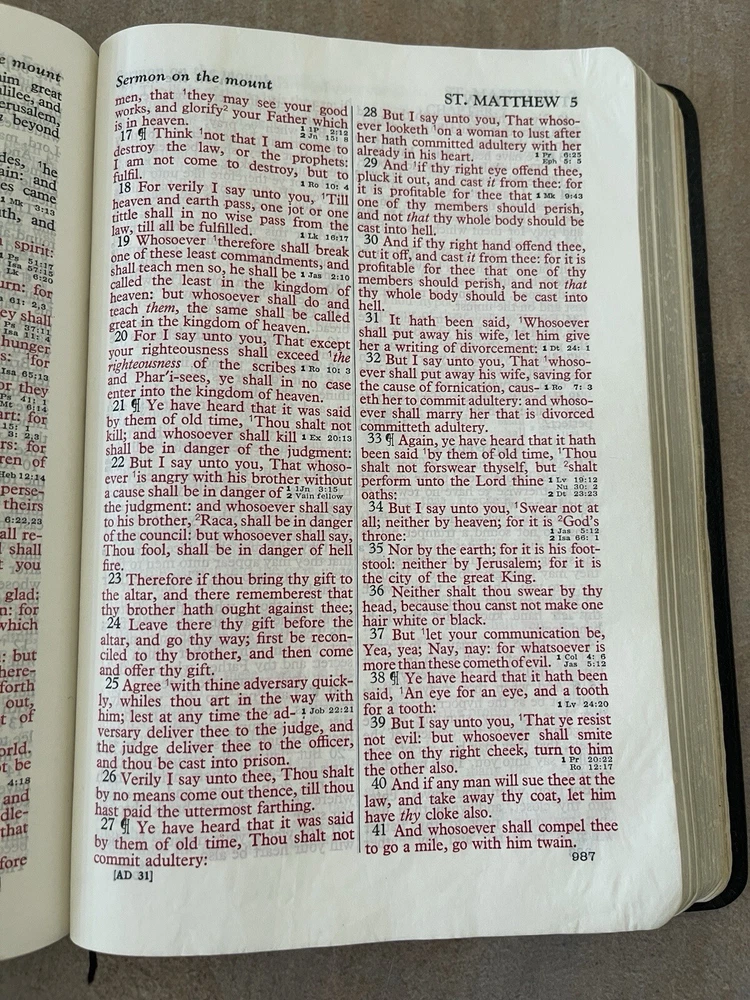 e mount
im great
lilee, and
erusalem,
beyond
des, ¹he
ain: and
es came
1 Mk 3:13
th, and
spirit:
Ps 51:17
Isa 57:15
Lk 6:20
urn: for
61: 2,3
ey shall
Ps 37:11
Isa 11: 4
hunger
s: ¹for
Isa 65:13
or they
Ps 41: 1
Mt 6:14
art: for
15: 1
3: 2,3
rs: for
ren of
Heb 12:14
perse-
theirs
6:22,23
all re-
shall
t you
glad:
n: for
which
: but
here-
forth
out,
t of
orld,
t be
4:18
and
dle-
that
fore
Sermon on the mount
ST. MATTHEW 5
men, that ¹they may see your good
works, and glorify² your Father which
is in heaven. 1 1P 2:12
2 Jn 15: 8
17 ¶ Think ¹not that I am come to
destroy the law, or the prophets:
I am not come to destroy, but to
fulfil. 1 Ro 10: 4
18 For verily I say unto you, ¹Till
heaven and earth pass, one jot or one
tittle shall in no wise pass from the
law, till all be fulfilled. 1 Lk 16:17
19 Whosoever ¹therefore shall break
one of these least commandments, and
shall teach men so, he shall be 1 Jas 2:10
called the least in the kingdom of
heaven: but whosoever shall do and
teach them, the same shall be called
great in the kingdom of heaven.
20 For I say unto you, That except
your righteousness shall exceed ¹the
righteousness of the scribes 1 Ro 10: 3
and Phar'i-sees, ye shall in no case
enter into the kingdom of heaven.
21 ¶ Ye have heard that it was said
by them of old time, ¹Thou shalt not
kill; and whosoever shall kill 1 Ex 20:13
shall be in danger of the judgment:
22 But I say unto you, That whoso-
ever ¹is angry with his brother without
a cause shall be in danger of 1 1Jn 3:15
2 Vain fellow
the judgment: and whosoever shall say
to his brother, ²Raca, shall be in danger
of the council: but whosoever shall say,
Thou fool, shall be in danger of hell
fire.
23 Therefore if thou bring thy gift to
the altar, and there rememberest that
thy brother hath ought against thee;
24 Leave there thy gift before the
altar, and go thy way; first be recon-
ciled to thy brother, and then come
and offer thy gift.
25 Agree ¹with thine adversary quick-
ly, whiles thou art in the way with
him; lest at any time the ad- 1 Job 22:21
versary deliver thee to the judge, and
the judge deliver thee to the officer,
and thou be cast into prison.
26 Verily I say unto thee, Thou shalt
by no means come out thence, till thou
hast paid the uttermost farthing.
27 ¶ Ye have heard that it was said
by them of old time, Thou shalt not
commit adultery:
[AD 31]
28 But I say unto you, That whoso-
ever looketh ¹on a woman to lust after
her hath committed adultery with her
already in his heart. 1 Pr 6:25
Eph 5: 5
29 And ¹if thy right eye offend thee,
pluck it out, and cast it from thee: for
it is profitable for thee that 1 Mk 9:43
one of thy members should perish,
and not that thy whole body should be
cast into hell.
30 And if thy right hand offend thee,
cut it off, and cast it from thee: for it is
profitable for thee that one of thy
members should perish, and not that
thy whole body should be cast into
hell.
31 It hath been said, ¹Whosoever
shall put away his wife, let him give
her a writing of divorcement: 1 Dt 24: 1
32 But I say unto you, That ¹whoso-
ever shall put away his wife, saving for
the cause of fornication, caus- 1 Ro 7: 3
eth her to commit adultery: and whoso-
ever shall marry her that is divorced
committeth adultery.
33 ¶ Again, ye have heard that it hath
been said ¹by them of old time, ¹Thou
shalt not forswear thyself, but ²shalt
perform unto the Lord thine 1 Lv 19:12
Nu 30: 2
oaths: 2 Dt 23:23
34 But I say unto you, ¹Swear not at
all; neither by heaven; for it is ²God's
throne: 1 Jas 5:12
2 Isa 66: 1
35 Nor by the earth; for it is his foot-
stool: neither by Jerusalem; for it is
the city of the great King.
36 Neither shalt thou swear by thy
head, because thou canst not make one
hair white or black.
37 But ¹let your communication be,
Yea, yea; Nay, nay: for whatsoever is
more than these cometh of evil. 1 Col 4: 6
Jas 5:12
38 ¶ Ye have heard that it hath been
said, ¹An eye for an eye, and a tooth
for a tooth: 1 Lv 24:20
39 But I say unto you, ¹That ye resist
not evil: but whosoever shall smite
thee on thy right cheek, turn to him
the other also. 1 Pr 20:22
Ro 12:17
40 And if any man will sue thee at the
law, and take away thy coat, let him
have thy cloke also.
41 And whosoever shall compel thee
to go a mile, go with him twain.
987